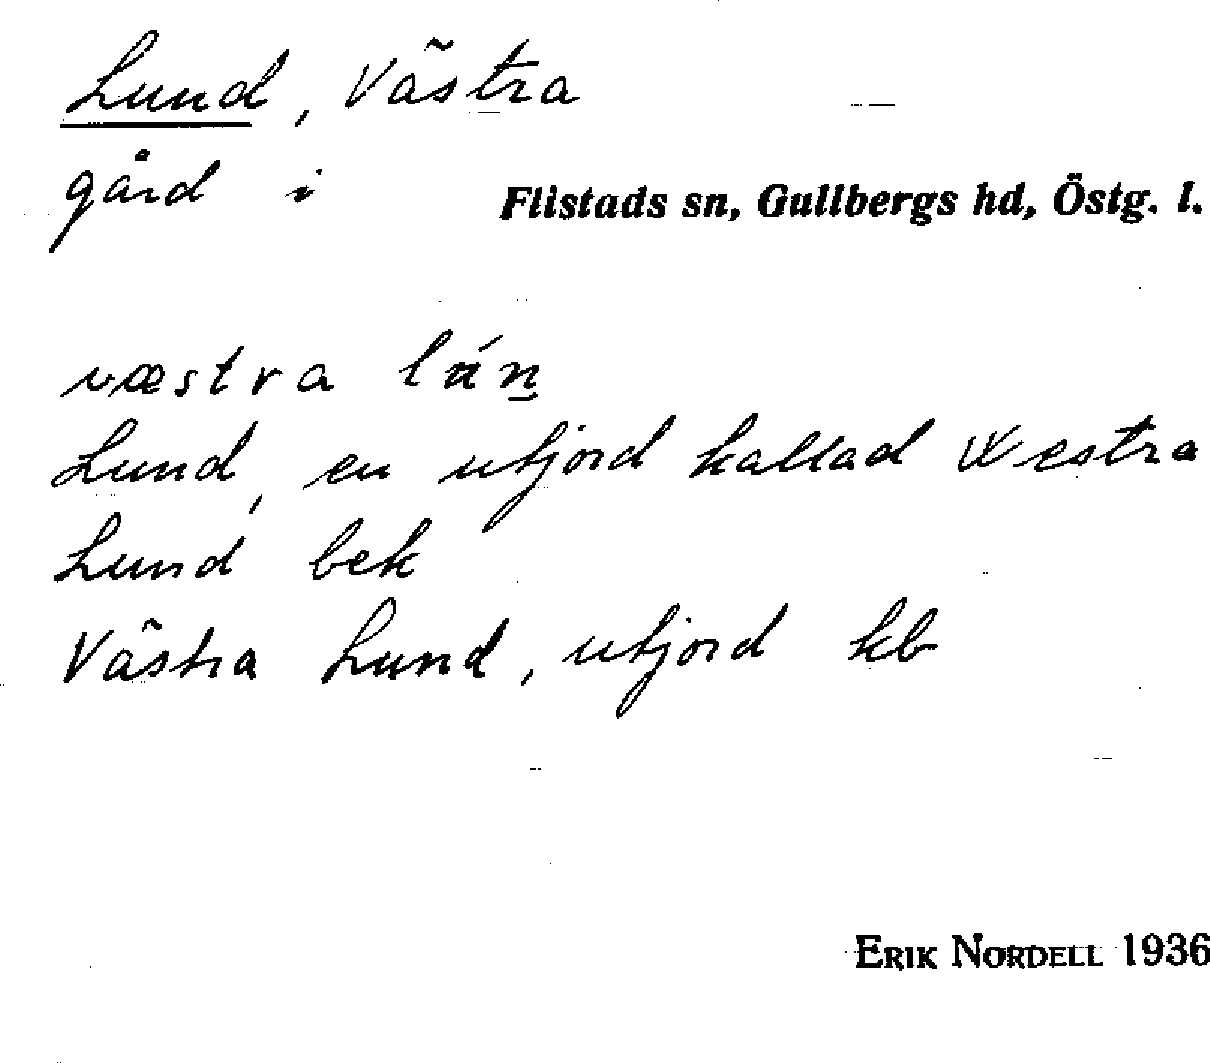 Lund, Västra
gård i Flistads sn, Gullbergs hd, Östg. l.
væstra lán̲
Lund, en utjord kallad Westra
Lund bek
Västra Lund, utjord kb
ERIK NORDELL 1936